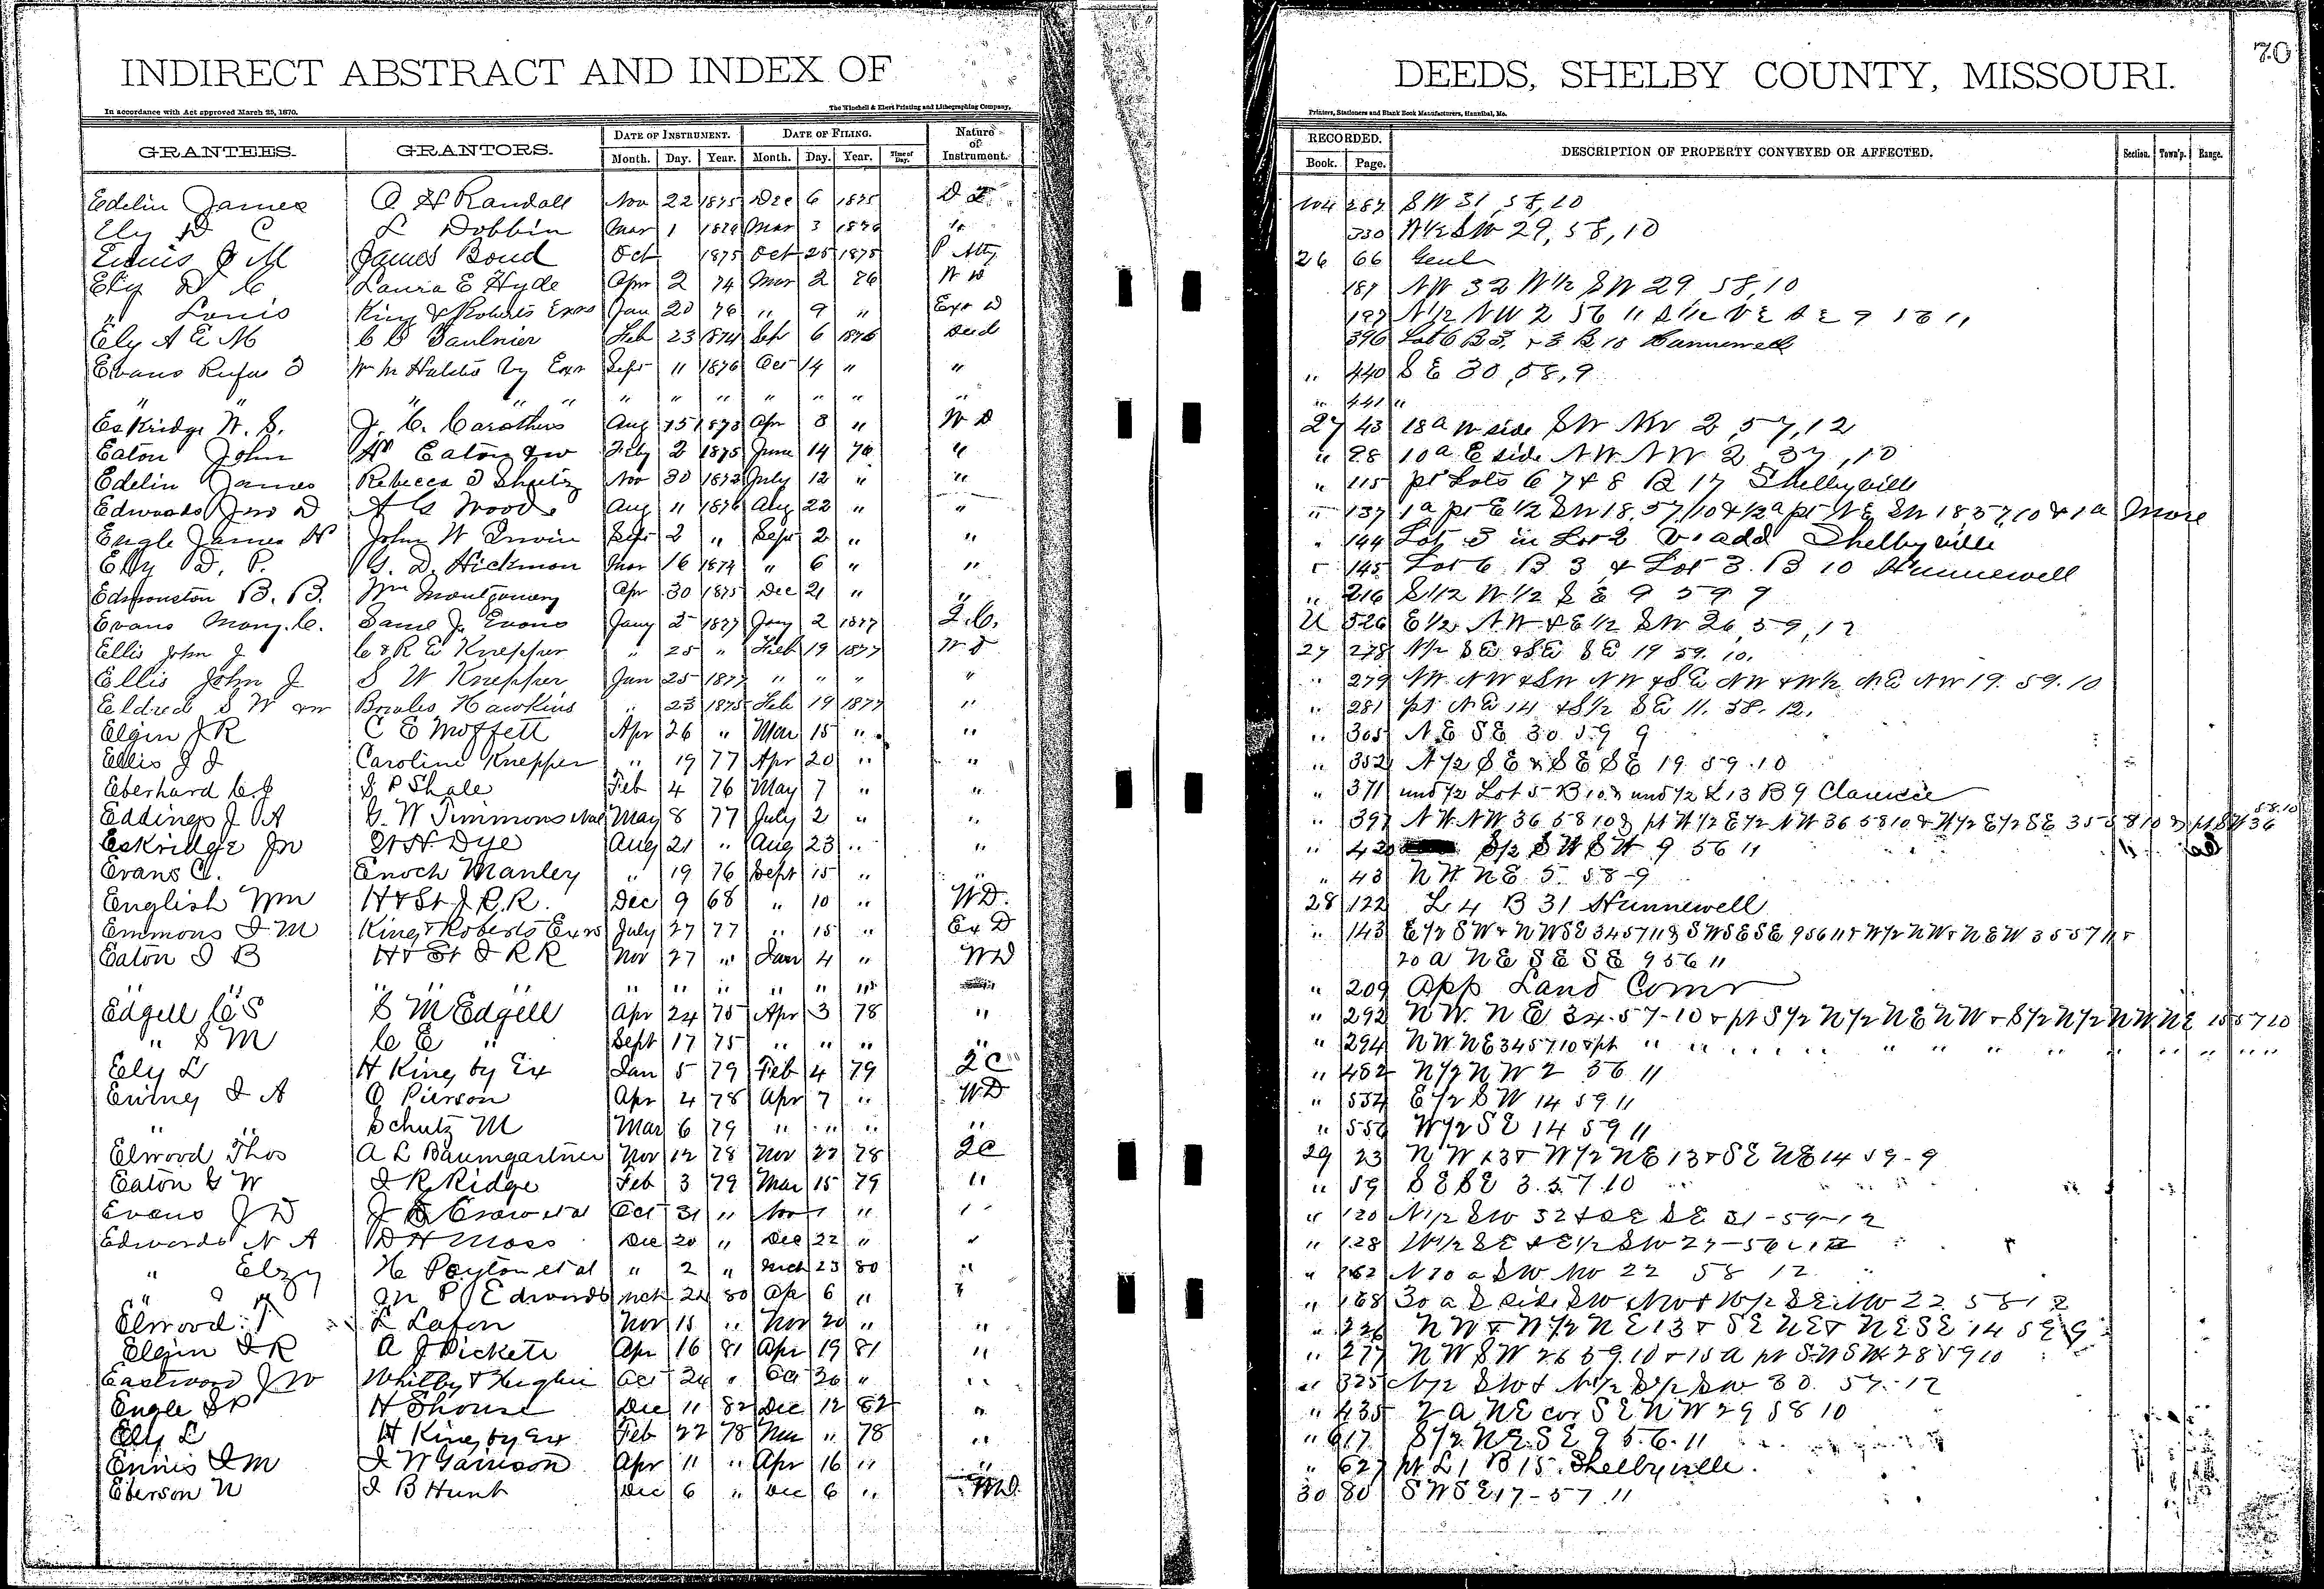 70
INDIRECT ABSTRACT AND INDEX OF DEEDS, SHELBY COUNTY, MISSOURI.
In accordance with Act approved March 25, 1870. The Winchell & Ebert Printing and Lithographing Company, Printers, Stationers and Blank Book Manufacturers, Hannibal, Mo.
GRANTEES. GRANTORS. DATE OF INSTRUMENT. DATE OF FILING. Nature of Instrument. RECORDED. DESCRIPTION OF PROPERTY CONVEYED OR AFFECTED. Section. Town'p. Range.
Month. Day. Year. Month. Day. Year. Time of Day. Book. Page.
Edelin James O H Randall Nov 22 1875 Dec 6 1875 D T 104 287 SW 31, 58, 10
Ely D C L Dobbin Mar 1 Mar 3 1876 " 330 W½ SW 29, 58, 10
Ennis J M James Bond Oct 1875 Oct 25 1875 P Atty 26 66 Genl
Ely D C Laura E Hyde Apr 2 74 Mar 2 76 W D 187 NW 32 W½ SW 29, 58, 10
" Louis King & Roberts Exrs Jan 20 76 " 9 " Exr D 197 N½ NW 2 56 11 S½ NE SE 9 56 11
Ely A E M Saulnier Feb 23 1874 Sep 6 1876 Deed 396 Lot 6 B 3, & 3 B 10 Hunnewell
Evans Rufus by Exr Sept 11 1876 Oct 14 " " " 440 SE 30, 58, 9
" " " " " " " " " " " " 441 "
Eskridge W. S. J. C. Carothers Aug 15 1873 Apr 8 " W D 27 43 18 a W side SW NW 2, 57, 12
Eaton John Eaton & w Feby 2 1875 June 14 76 " " 98 10 a E side NW NW 2, 57, 10
Edelin James Rebecca Shutz Nov 30 1872 July 12 " " " 115 pt Lots 6 7 & 8 B 17 Shelbyville
Edwards Jno D A G Woods Aug 11 1876 Aug 22 " " " 137 1 a pt E½ SW 18, 57, 10 & ½ a pt NE SW 18 57, 10 & 1 a More
Engle James H John W Irwin Sept 2 " Sept 2 " " " 144 Lot 3 in Lot 2 add Shelbyville
Ely D. P. G. D. Hickman Mar 16 1874 " 6 " " " 145 Lot 6 B 3, & Lot 3 B 10 Hunnewell
Edmonston B. B. Wm Montgomery Apr 30 1875 Dec 21 " " " 216 S½ W½ SE 9 59 9
Evans Mary C. Saml J. Evans Jany 2 1877 Jany 2 1877 2. C. U 526 E½ NW & E½ SW 26, 59, 12
Ellis John J C & R E Knepper " 25 " Feb 19 1877 W D 27 278 N½ SE & SE SE 19 59. 10.
Ellis John J S W Knepper Jan 25 1877 " " " " " 279 NW NW & SW NW & SE NW & W½ NE NW 19. 59. 10
Eldred S W & w Bowles Hawkins " 23 1875 Feb 19 1877 " " 281 pt NE 14 & S½ SE 11. 58. 12.
Elgin J R C E Moffett Apr 26 " Mar 15 " " " 305 NE SE 30 59 9
Ellis J J Caroline Knepper " 19 77 Apr 20 " " " 352 N½ SE & SE SE 19 59 10
Eberhard C. J S P Shale Feb 4 76 May 7 " " " 371 und ½ Lot 5 B 10 & und ½ L 13 B 9 Clarence
Eddings J A G. W Timmons May 8 77 July 2 " " " 397 NW NW 36 58 10 & pt W½ E½ NW 36 58 10 & W½ E½ SE 35 58 10 & pt SW 36 58 10
Eskridge Jn Dye Aug 21 " Aug 23 " " " 420 S½ SW SW 9 56 11
Evans C. Enoch Manley " 19 76 Sept 15 " " " 43 NW NE 5 58-9
English Wm H & St J. R. R. Dec 9 68 " 10 " WD. 28 122 L 4 B 31 Hunnewell
Emmons I M King & Roberts Exrs July 27 77 " 15 " Ex D " 143 E½ SW & NW SE 34 57 11 & SW SE SE 9 56 11 & W½ NW & NE W 35 57 11 &
20 a NE SE SE 9 56 11
Eaton I B H & St I R R Nov 27 " Jan 4 " WD
" " " " " " " " " " 209 App Land Comr
Edgell C S S M Edgell Apr 24 75 Apr 3 78 " " 292 NW NE 34-57-10 & pt S½ N½ NE NW & S½ N½ NW NE 15 57 10
" S M C E " Sept 17 75 " " " " " 294 NW NE 34 57 10 & pt " " " " " " " " "
Ely L H King by Ex Jan 5 79 Feb 4 79 2 C " 482 N½ NW 2 56 11
Ewing I A O Pierson Apr 4 78 Apr 7 " WD " 554 E½ SW 14 59 11
" " Schutz M Mar 6 79 " " " " " 556 W½ SE 14 59 11
Elwood Thos A L Baumgartner Nov 12 78 Nov 22 78 2C 29 23 NW 13 & W½ NE 13 & SE NE 14 59-9
Eaton G W I R Ridge Feb 3 79 Mar 15 79 " " 59 SE SE 3. 57. 10
Evans J D Crow et al Oct 31 " Nov 1 " " " 120 N½ SW 32 & SE SE 31-59-12
Edwards N A D H Moss Dec 20 " Dec 22 " " " 128 W½ SE & E½ SW 27-56
" Elzy Peyton et al " 2 " Mch 23 80 " " 162 N 30 a SW NW 22 58 12
" M P Edwards Mch 24 80 Apr 6 " " " 168 30 a S side SW NW & W½ SE NW 22 58 12
Elwood T L Lafon Nov 15 " Nov 20 " " " 226 NW & W½ NE 13 & SE NE & NE SE 14 59 9
Elgin I R A J Pickett Apr 16 81 Apr 19 81 " " 277 NW SW 26 59. 10 & 15 a pt SW SW 28 59 10
Eastwood J W Whitby & Oct 24 " Oct 26 " " " 325 N½ SW & N½ S½ SW 30 57-12
Engle S P H Shouse Dec 11 82 Dec 12 82 " " 435 2 a NE cor SE NW 29 58 10
Ely L H King by Ex Feb 22 78 Mar " 78 " " 617 S½ NE SE 9 56 11
Ennis I M I W Garrison Apr 11 " Apr 16 " " " 627 pt L 1 B 15 Shelbyville.
Eberson N I B Hunt Dec 6 " Dec 6 " WD. 30 80 SW SE 17-57 11